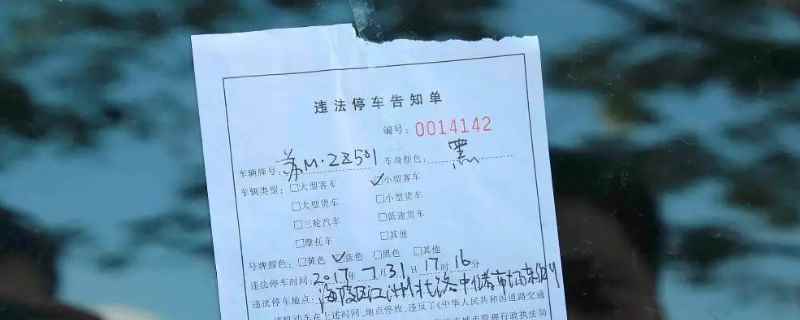 违法停车告知单
编号：0014142
车辆牌号：苏M·2Z581 车身颜色：黑
车辆类型：□大型客车 ☑小型客车
□大型货车 □小型货车
□三轮汽车 □低速货车
□摩托车 □其他
号牌颜色：□黄色 ☑蓝色 □黑色 □其他
违法停车时间：2017年7月31日17时16分
违法停车地点：海陵区江洲北路中储市场东侧
在上述时间、地点停放，违反了《中华人民共和国道路交通